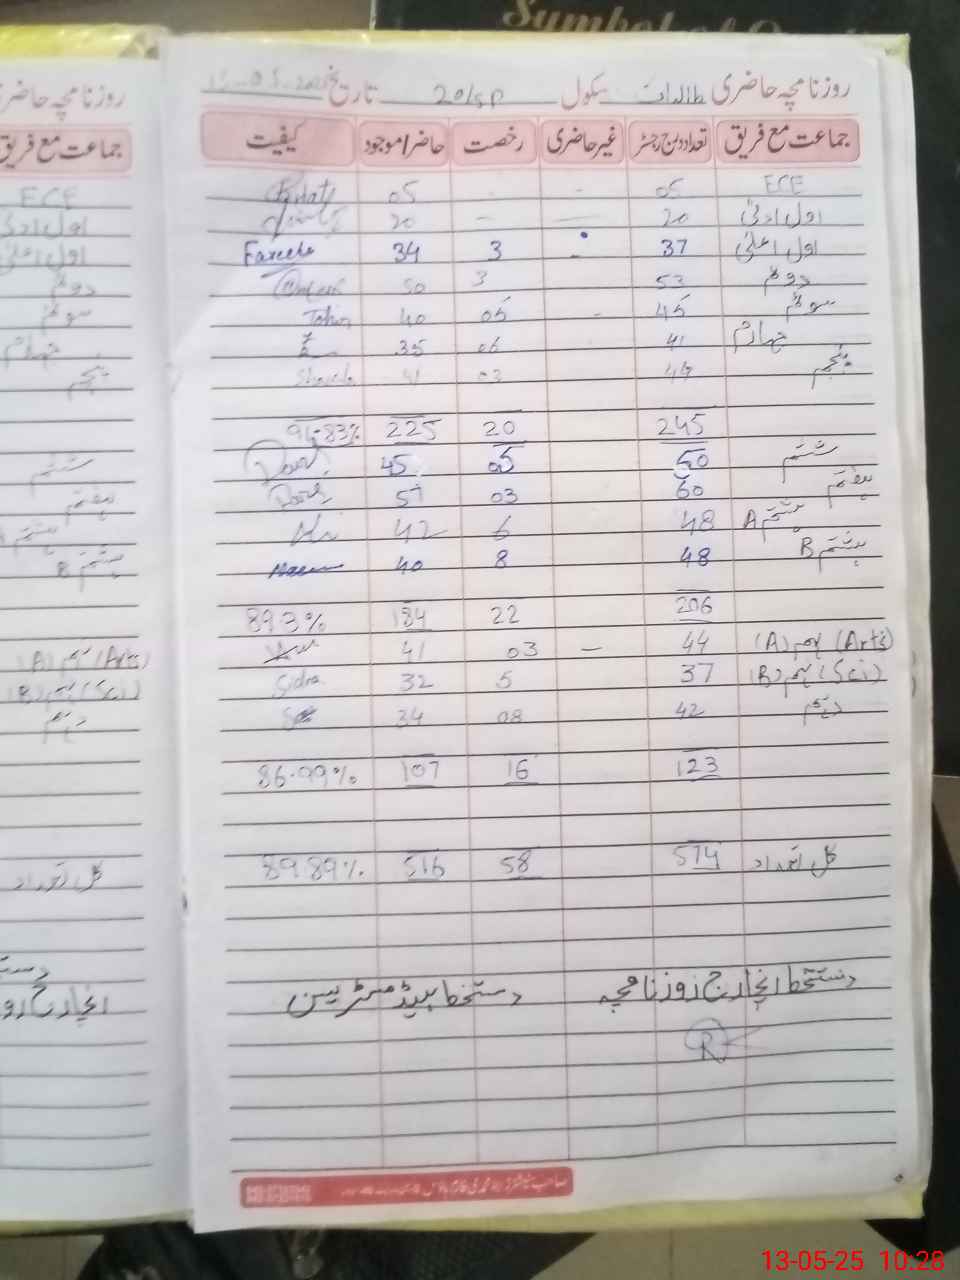 Symbol of
روزنامچہ حاضری طالبات سکول 20/SP تاریخ
جماعت مع فریق تعداد درج رجسٹر غیر حاضری رخصت حاضر/موجود کیفیت
ECE 05 - - 05
اول ادنیٰ 20 — — 20
اول اعلیٰ 37 - 3 34 Fareeda
دوئم 53 3 50
سوئم 45 - 05 40
چہارم 41 06 35
پنجم 44 03 41
245 20 225 91.83%
ششم 50 05 45
ہفتم 60 03 57
ہشتم A 48 6 42
ہشتم B 48 8 40
206 22 184 89.3%
نہم (A) (Arts) 44 — 03 41
نہم (B) (Sci) 37 5 32 Sidra
دہم 42 08 34
123 16 107 86.99%
کل تعداد 574 58 516 89.89%
دستخط انچارج روزنامچہ دستخط ہیڈ مسٹریس
R
روزنامچہ حاضری
جماعت مع فریق
ECE
اول ادنیٰ
اول اعلیٰ
دوئم
سوئم
چہارم
پنجم
ششم
ہفتم
ہشتم A
ہشتم B
نہم (A) (Arts)
نہم (B) (Sci)
دہم
کل تعداد
13-05-25 10:28